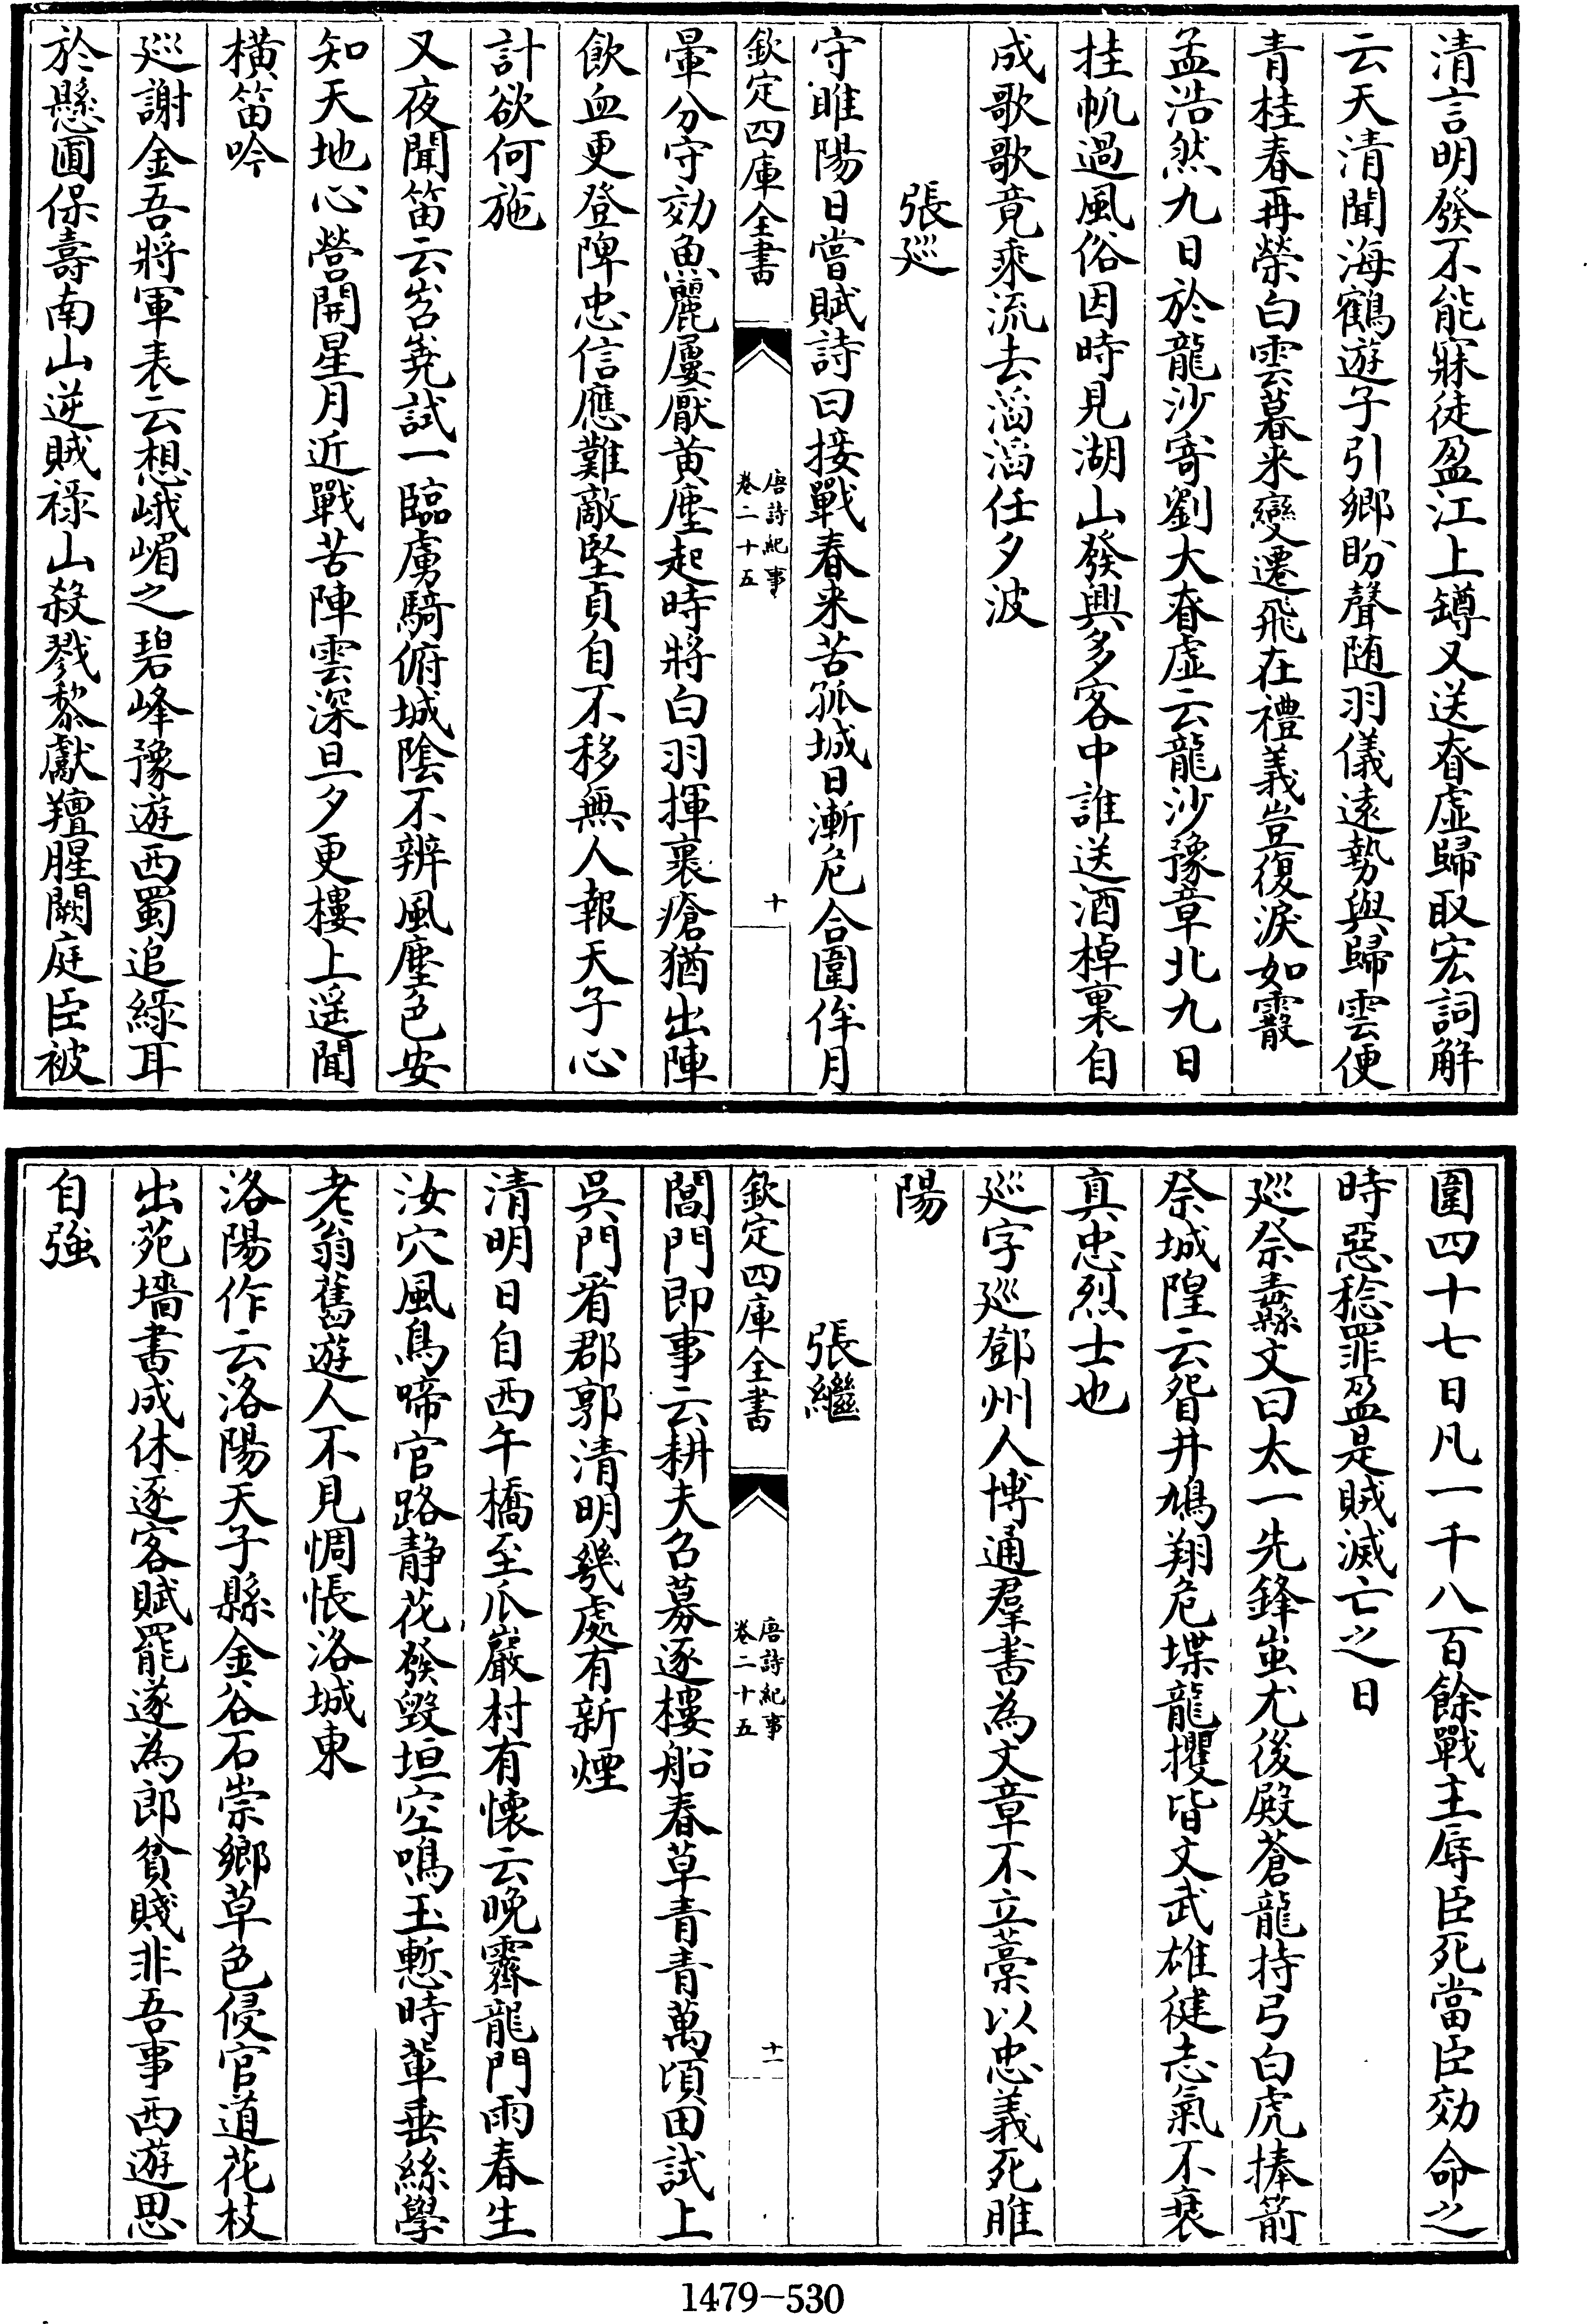 清言明發不能寐徒盈江上罇又送昚虚歸取宏詞解
云天清聞海鶴遊子引鄉盼聲随羽儀遠勢與歸雲便
青桂春再榮白雲暮来變遷飛在禮義豈復淚如霰
孟浩然九日於龍沙寄劉大昚虚云龍沙豫章北九日
挂帆過風俗因時見湖山發興多客中誰送酒棹裏自
成歌歌竟乘流去滔滔任夕波
張廵
守睢陽日嘗賦詩曰接戰春来苦孤城日漸危合圍侔月
欽定四庫全書
唐詩紀事
卷二十五
十
暈分守効魚麗屢厭黄塵起時將白羽揮裹瘡猶出陣
飲血更登陴忠信應難敵堅貞自不移無人報天子心
計欲何施
又夜聞笛云岧嶤試一臨虜騎俯城隂不辨風塵色安
知天地心營開星月近戰苦陣雲深旦夕更樓上遥聞
横笛吟
廵謝金吾將軍表云想峨嵋之碧峰豫遊西蜀追緑耳
於懸圃保壽南山逆賊禄山殺戮黎獻羶腥闕庭臣被
圍四十七日凡一千八百餘戰主辱臣死當臣効命之
時惡稔罪盈是賊滅亡之日
廵祭纛文曰太一先鋒蚩尤後殿蒼龍持弓白虎捧箭
祭城隍云眢井鳩翔危堞龍攫皆文武雄健志氣不衰
真忠烈士也
廵字廵鄧州人博通羣書為文章不立藁以忠義死睢
陽
張繼
欽定四庫全書
唐詩紀事
卷二十五
十一
閶門即事云耕夫召募逐樓船春草青青萬頃田試上
吳門看郡郭清明幾處有新煙
清明日自西午橋至瓜巖村有懷云晚霽龍門雨春生
汝穴風鳥啼官路静花發毀垣空鳴玉慙時輩垂絲學
老翁舊遊人不見惆悵洛城東
洛陽作云洛陽天子縣金谷石崇鄉草色侵官道花枝
出苑墻書成休逐客賦罷遂為郎貧賤非吾事西遊思
自強
1479-530